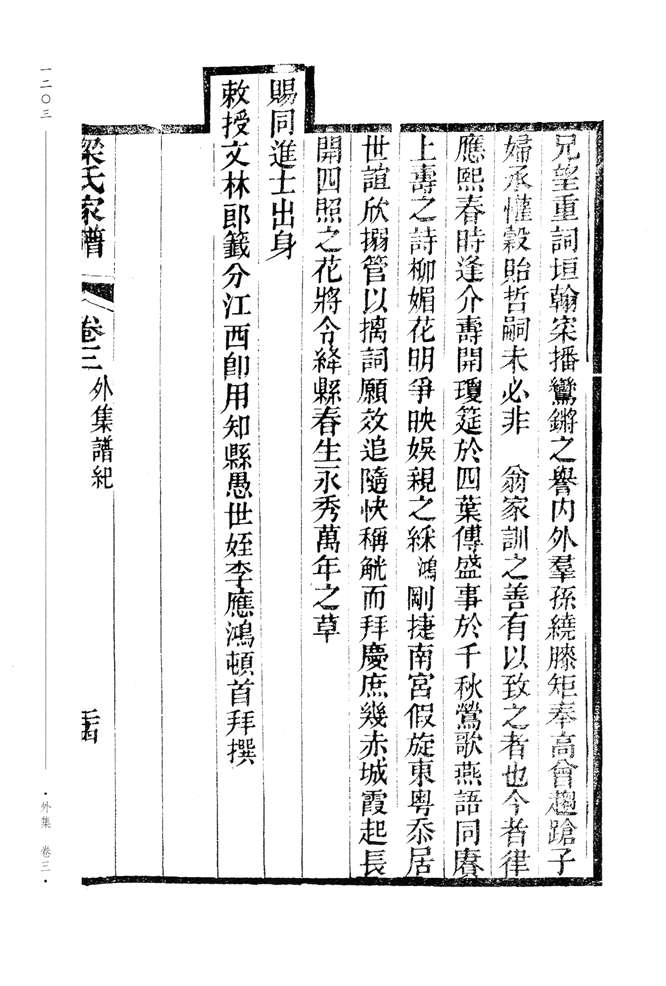 兄望重詞垣翰寀播鸞鏘之譽内外羣孫繞膝矩奉高曾趨蹌子
婦承懽穀貽哲嗣未必非　翁家訓之善有以致之者也今者律
應熙春時逢介壽開瓊筵於四葉傳盛事於千秋鶯歌燕語同賡
上壽之詩柳媚花明爭映娛親之綵鴻剛捷南宮假旋東粤忝居
世誼欣搦管以摛詞願效追隨快稱觥而拜慶庶幾赤城霞起長
開四照之花將令絳縣春生永秀萬年之草
賜同進士出身
敕授文林郎籤分江西卽用知縣愚世姪李應鴻頓首拜撰
梁氏家譜　卷三　外集譜紀
一二〇三
·外集　卷三·